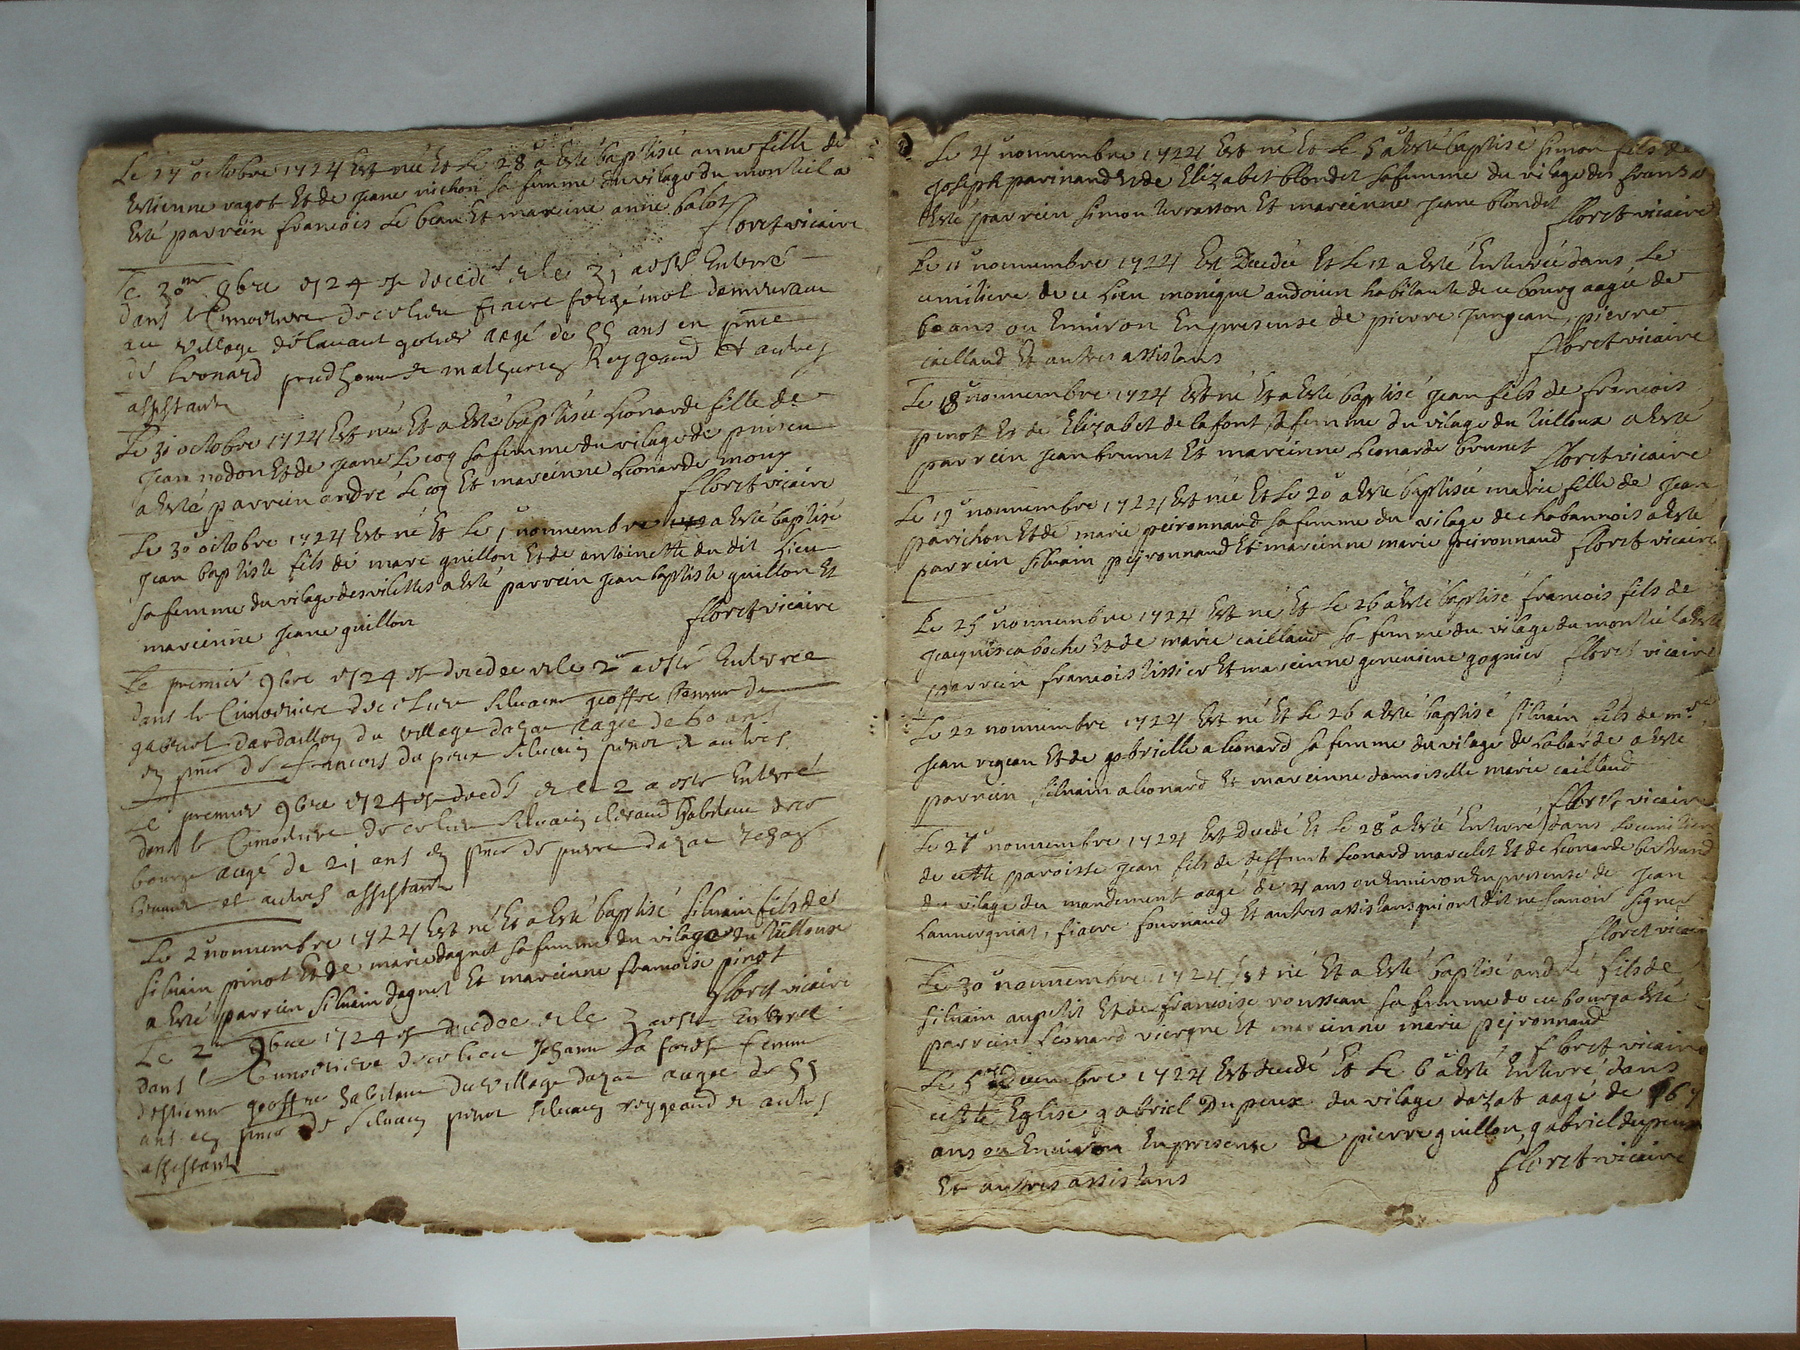 Le 27e octobre 1724 Est née Et Le 28e a Esté baptisée anne fille de
Estienne ragot Et de jeane vichon sa femme du vilage du montiel a
Esté parrein francois Le beau Et mareine anne balot
floret vicaire
Le 30me 8bre 1724 est decedé et le 31 a esté Enterré
dans le Cimetiere de ce lieu fiacre forgemol demeurant
au village aagé de 55 ans en pnce
de Leonard prudhomme et mathurin Reygeaud et autres
assistants
Le 30 octobre 1724 Est née Et a Esté baptisée Lionarde fille de
jean nodon Et de jeane Le coq sa femme du vilage de
a Esté parrein andré Le coq Et mareinne Lionarde
floret vicaire
Le 30e octobre 1724 Est né Et Le 1er nouuembre a Esté baptisé
jean baptiste fils de marc guillon Et de antoinette du dit Lieu
sa femme du vilage des vilettes a Esté parrein jean baptiste guillon Et
mareinne jeane guillon
floret vicaire
Le premier 9bre 1724 est decedee et le 2e a esté Enterree
dans le Cimetiere de ce Lieu silvaine geoffre femme de
gabriel dardaillon du village dazat aagee de 60 ans
en pnce de francois du peux silvain pinot et autres
Le premier 9bre 1724 est decedé et le 2 a esté Enterré
dans le Cimetiere de ce lieu silvain habitant de ce
bourg aagé de 21 ans en pnce de pierre dazat
et autres assistants
Le 2e nouuembre 1724 Est né Et a Esté baptisé silvain fils de
silvain pinot Et de marie dagnot sa femme du vilage du tilloux
a Esté parrein silvain dagnot Et mareinne francoise pinot
floret vicaire
Le 2e 9bre 1724 est decedee et le 3 a esté Enterree
dans le Cimetiere de ce lieu femme
destienne geoffre habitant du village dazat aagee de 55
ans en pnce de silvain pinot silvain reygeaud et autres
assistants
Le 4e nouuembre 1724 Est né Et Le 5 a Esté baptisé simon fils de
joseph parinaud Et de Elizabet blondet sa femme du vilage des a
Esté parrein simon Et mareinne jeane blondet
floret vicaire
Le 11e nouuembre 1724 Est Decedée Et Le 12 a Esté Enterrée dans Le
cemitiere de ce Lieu monique habitante de ce bourg aagée de
60 ans ou Enuiron En presense de pierre jungeau, pierre
caillaud Et autres assistans
floret vicaire
Le 18e nouuembre 1724 Est né Et a Esté baptisé jean fils de francois
pinot Et de Elizabet de lafont sa femme du vilage du tilloux a Esté
parrein jean brunet Et mareinne Leonarde brunet
floret vicaire
Le 19e nouuembre 1724 Est née Et Le 20e a Esté baptisée marie fille de jean
parichon Et de marie peironnaud sa femme du vilage de chabannois a Esté
parrein silvain peironnaud Et mareinne marie peironnaud
floret vicaire
Le 25e nouuembre 1724 Est né Et Le 26 a Esté baptisé francois fils de
jacques caboche Et de marie caillaud sa femme du vilage du montiel a Esté
parrein francois tissier Et mareinne geneuieue gognier
floret vicaire
Le 22 nouuembre 1724 Est né Et Le 26 a Esté baptisé silvain fils de mre
jean rigeau Et de gabrielle alionard sa femme du vilage de Labarde a Esté
parrein silvain alionard Et mareinne damoiselle marie caillaud
floret vicaire
Le 27e nouuembre 1724 Est decedé Et Le 28e a Esté Enterré dans Le cemitiere
de cette paroisse jean fils de deffunt Leonard marcelet Et de Leonarde bertrand
du vilage du mandement aagé de 4 ans ou Enuiron En presense de jean
Lauuergniat, fiacre fournaud Et autres assistans qui ont dit ne scauoir signer
floret vicaire
Le 30e nouuembre 1724 Est né Et a Esté baptisé andré fils de
silvain aupetit Et de francoise rousseau sa femme de ce bourg a Esté
parrein Leonard viergne Et mareinne marie peironnaud
floret vicaire
Le 5e Decembre 1724 Est decedé Et Le 6e a Esté Enterré dans
cette Eglise gabriel Dupeux du vilage dazat aagé de 67
ans ou Enuiron En presense de pierre guillon, gabriel dupeux
Et autres assistans
floret vicaire